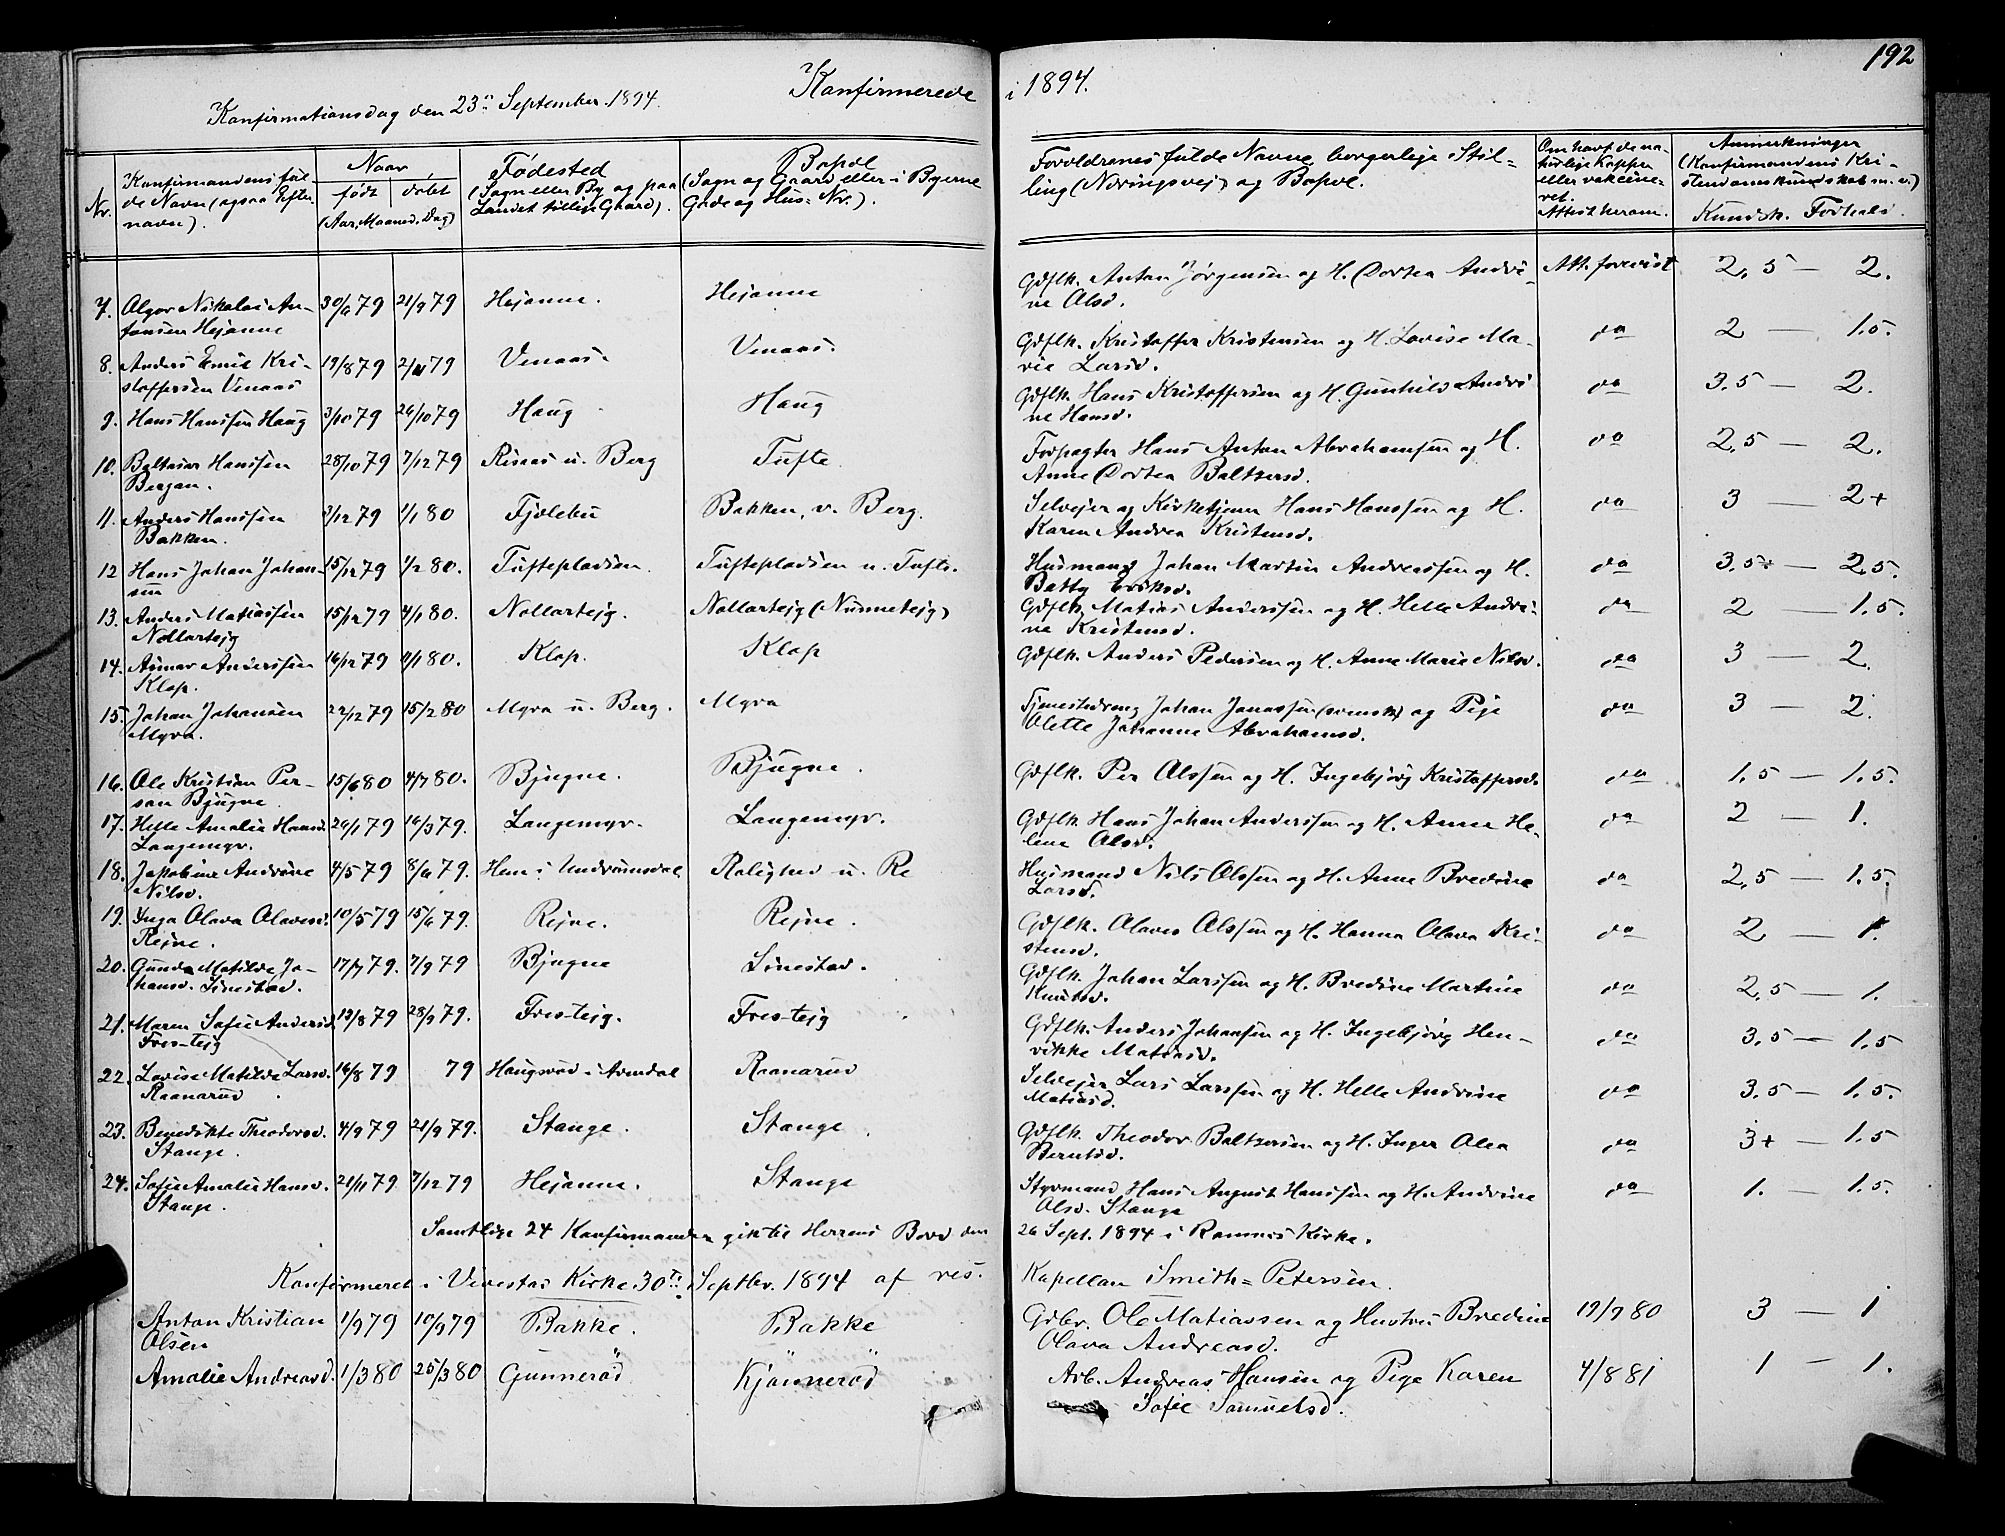 192
Konfirmerede i 1894.
Konfirmationsdag den 23de September 1894.
Nr.
Konfirmandens ful-
de Navn (ogsaa Efter-
navn).
Naar
født døbt
(Aar, Maaned, Dag)
Fødested
(Sogn eller By og paa
Landet tillige Gaard).
Bopæl
(Sogn og Gaard eller i Byerne
Gade og Hus-Nr.).
Forældrenes fulde Navne, borgerlige Stil-
ling (Næringsvej) og Bopæl.
Om havt de na-
turlige Kopper
eller vaccine-
ret.
Attest herom.
Anmerkninger
(Konfirmandens Kri-
stendomskundskab m. v.)
Kundsk. Forhold.
7. Olger Nikolai An- 30/6 79 21/9 79 Hejanne. Hejanne Gdflk. Anton Jørgensen og H. Dortea Andri- Att. forevist 2,5 — 2.
tonsen Hejanne ne Olsd.
8. Anders Emil Kri- 19/8 79 2/11 79 Vinaas. Vinaas. Gdflk. Kristoffer Kristensen og H. Lovise Ma- do 2 — 1.5.
stoffersen Vinaas rie Larsd.
9. Hans Hanssen Haug 3/10 79 26/10 79 Haug Haug Gdflk. Hans Kristoffersen og H. Gunhild Andri- do 3.5 — 2.
ne Hansd.
10. Baltasar Hanssen 28/10 79 7/12 79 Risaas u. Berg Tufte. Forpagter Hans Anton Abrahamsen og H. do 2,5 — 2.
Bergan. Anne Dortea Baltzersd.
11. Anders Hanssen 2/12 79 1/1 80 Fjølebu Bakken, v. Berg. Selvejer og Kirketjener Hans Hanssen og H. do 3 — 2+
Bakken. Karen Andrea Kristensd.
12 Hans Johan Johan- 15/12 79 1/2 80. Tuftepladsen. Tuftepladsen u. Tufte. Husmand Johan Martin Andreassen og H. do 3.5+ — 2.5.
sen Batty Eriksd.
13. Anders Matiassen 15/12 79 4/1 80. Nollartejg. Nollartejg (Nunnetejg) Gdflk. Matias Anderssen og H. Helle Andri- do 2 — 1.5.
Nollartejg ne Kristensd.
14. Asmar Anderssen 16/12 79 11/1 80. Klop. Klop Gdflk. Anders Pedersen og H. Anne Marie Nilsd. do 3 — 2.
Klop.
15. Johan Johansen 22/12 79 15/2 80 Myra u. Berg. Myra Tjenestedreng Johan Jonassen (svensk) og Pige do 3 — 2.
Myra. Olette Johanne Abrahamsd.
16. Ole Kristian Per- 15/6 80 4/7 80. Bjugne. Bjugne. Gdflk. Per Olssen og H. Ingebjørg Kristoffersd. do 1.5 — 1.5.
son Bjugne
17. Helle Amalie Hansd. 26/1 79 16/3 79. Langemyr. Langemyr. Gdflk. Hans Johan Anderssen og H. Anne He- do 2 — 1.
Langemyr. lene Olsd.
18. Jakobine Andrine 4/5 79 8/6 79. Hem i Undrumsdal Rolighed u. Re Husmand Nils Olssen og H. Anne Bredine do 2,5 — 1.5.
Nilsd. Larsd.
19. Inga Olava Olavesd. 10/5 79 15/6 79. Rejne. Rejne. Gdflk. Olaves Olssen og H. Hanna Olava Kri- do 2 — 1.
Rejne. stensd.
20. Gunda Matilde Jo- 17/7 79. 7/9 79 Bjugne Linestad. Gdflk. Johan Larssen og H. Bredine Martine do 2,5 — 1.
hansd. Linestad. Knutsd.
21. Maren Sofie Andersd. 19/8 79 28/9 79. Fres-tejg. Fres-tejg Gdflk. Anders Johansen og H. Ingebjørg Hen- do 3,5 — 1.5
Fres-tejg rikke Matiasd.
22. Lovise Matilde Larsd. 16/8 79 79 Haugsrød i Arendal Raanarud Selvejer Lars Larssen og H. Helle Andrine do 3,5 — 1.5.
Raanarud Matiasd.
23. Benedikte Theodorsd. 4/9 79 21/9 79. Stange. Stange Gdflk. Theodor Baltzersen og H. Inger Olea do 3+ — 1.5
Stange. Berntsd.
24. Sofie Amalie Hansd. 21/11 79 7/12 79 Hejanne. Stange Styrmand Hans August Hanssen og H. Andrine do 1. — 1.5.
Stange. Olsd. Stange
Samtlige 24 Konfirmander gik til Herrens Bord den 26 Sept. 1894 i Ramnes Kirke.
Konfirmeret i Vivestad Kirke 30te Septbr. 1894 af res. Kapellan Smith-Petersen.
Anton Kristian 1/9 79 10/9 79 Bakke. Bakke Gdbr. Ole Matiassen og Hustru Bredine 19/9 80 3 — 1
Olsen Olava Andreasd.
Amalie Andreasd. 1/3 80 25/3 80 Gunnerød Kjønnerød Arb. Andreas Hansen og Pige Karen 4/8 81 1 — 1.
Sofie Samuelsd.